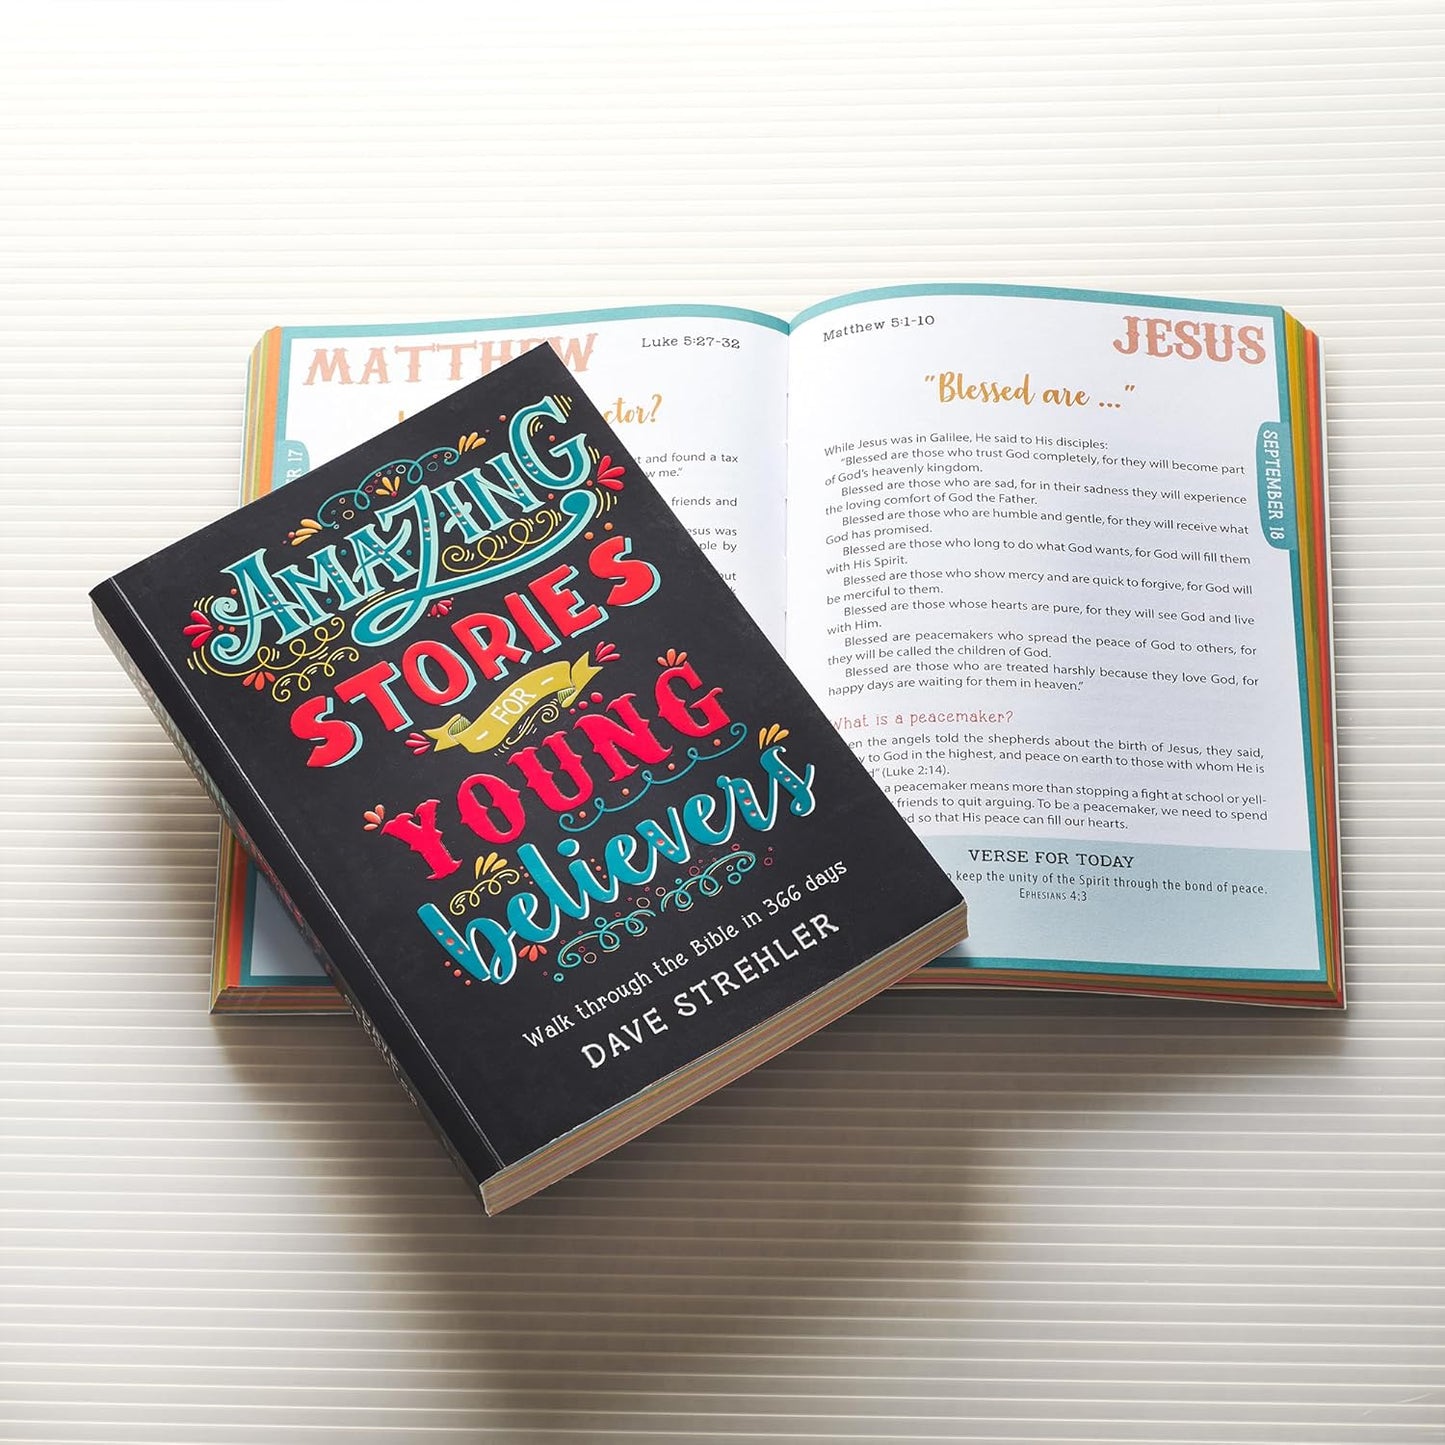 AMAZING
STORIES
- FOR -
YOUNG
believers
Walk through the Bible in 366 days
DAVE STREHLER
MATTHEW
Luke 5:27-32
ctor?
and found a tax
me."
friends and
was
by
17
Matthew 5:1-10
JESUS
"Blessed are ..."
While Jesus was in Galilee, He said to His disciples:
"Blessed are those who trust God completely, for they will become part
of God's heavenly kingdom.
Blessed are those who are sad, for in their sadness they will experience
the loving comfort of God the Father.
Blessed are those who are humble and gentle, for they will receive what
God has promised.
Blessed are those who long to do what God wants, for God will fill them
with His Spirit.
Blessed are those who show mercy and are quick to forgive, for God will
be merciful to them.
Blessed are those whose hearts are pure, for they will see God and live
with Him.
Blessed are peacemakers who spread the peace of God to others, for
they will be called the children of God.
Blessed are those who are treated harshly because they love God, for
happy days are waiting for them in heaven."
What is a peacemaker?
en the angels told the shepherds about the birth of Jesus, they said,
y to God in the highest, and peace on earth to those with whom He is
(Luke 2:14).
a peacemaker means more than stopping a fight at school or yell-
friends to quit arguing. To be a peacemaker, we need to spend
so that His peace can fill our hearts.
VERSE FOR TODAY
keep the unity of the Spirit through the bond of peace.
EPHESIANS 4:3
SEPTEMBER 18